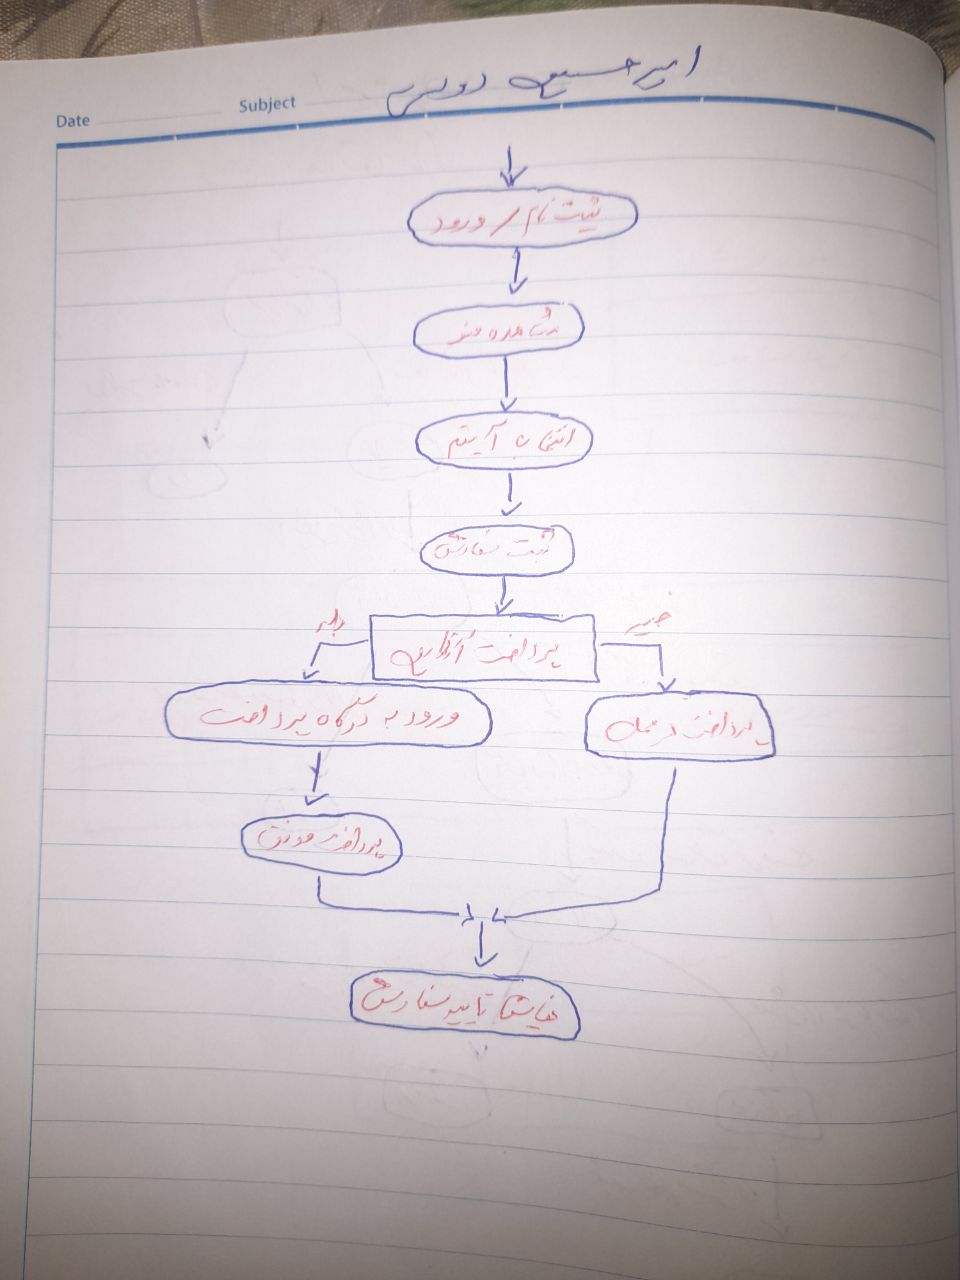 Date
Subject
امیرحسین
ثبت نام / ورود
مشاهده منو
انتخاب آیتم
ثبت سفارش
بله
خیر
پرداخت آنلاین
ورود به درگاه پرداخت
پرداخت در محل
پرداخت موفق
نمایش تایید سفارش